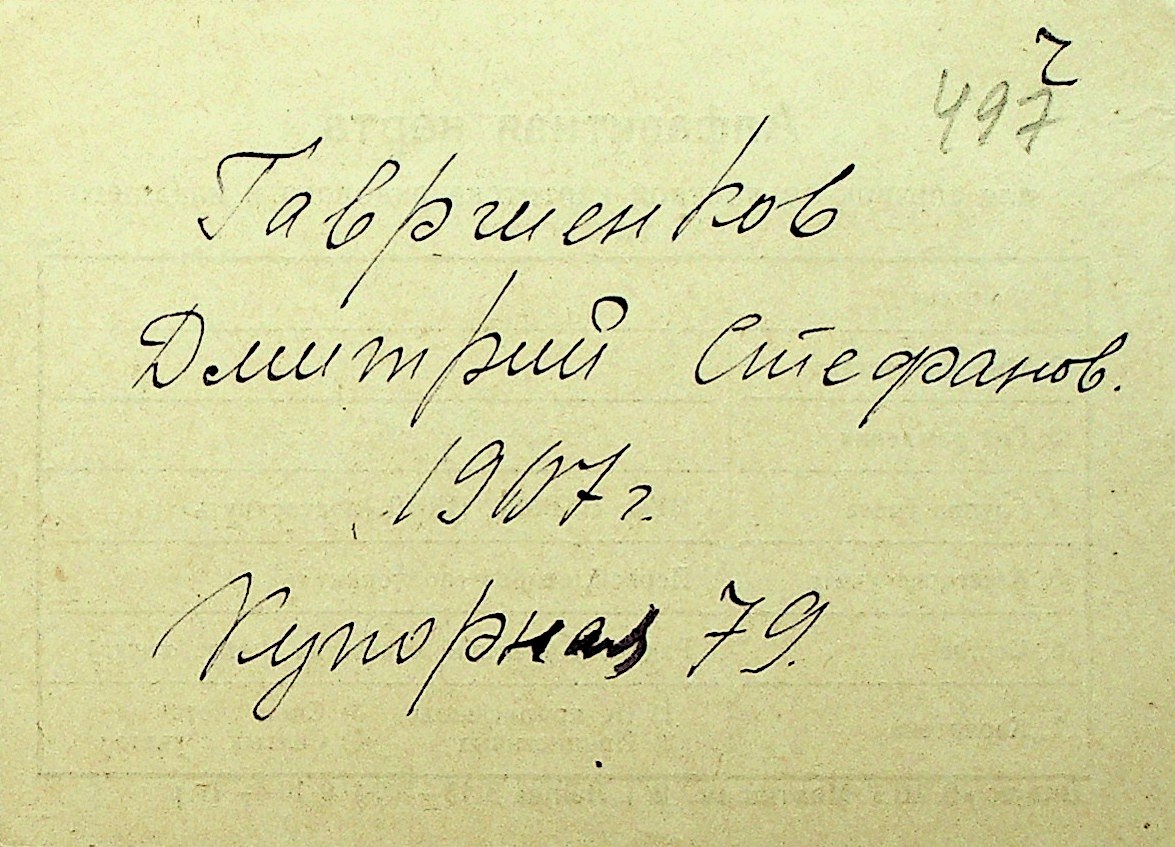 497
Гавриленков
Дмитрий Стефанов.
1907 г.
Купорная 79.